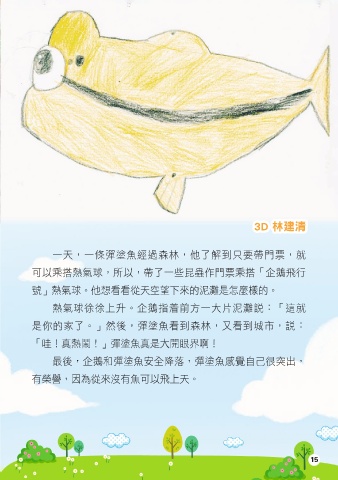 3D 林建清
一天，一條彈塗魚經過森林，他了解到只要帶門票，就
可以乘搭熱氣球，所以，帶了一些昆蟲作門票乘搭「企鵝飛行
號」熱氣球。他想看看從天空望下來的泥灘是怎麼樣的。
熱氣球徐徐上升。企鵝指着前方一大片泥灘説：「這就
是你的家了。」然後，彈塗魚看到森林，又看到城市，説：
「哇！真熱鬧！」彈塗魚真是大開眼界啊！
最後，企鵝和彈塗魚安全降落，彈塗魚感覺自己很突出，
有榮譽，因為從來沒有魚可以飛上天。
15